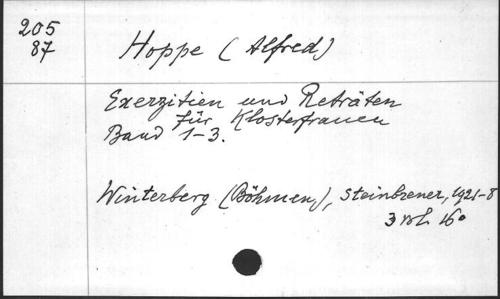 205
87
Hoppe (Alfred)
Exerzitien und Reträten
für Klosterfrauen
Band 1-3.
Winterberg (Böhmen), Steinbrener, 1921-8
3 vol. 16°